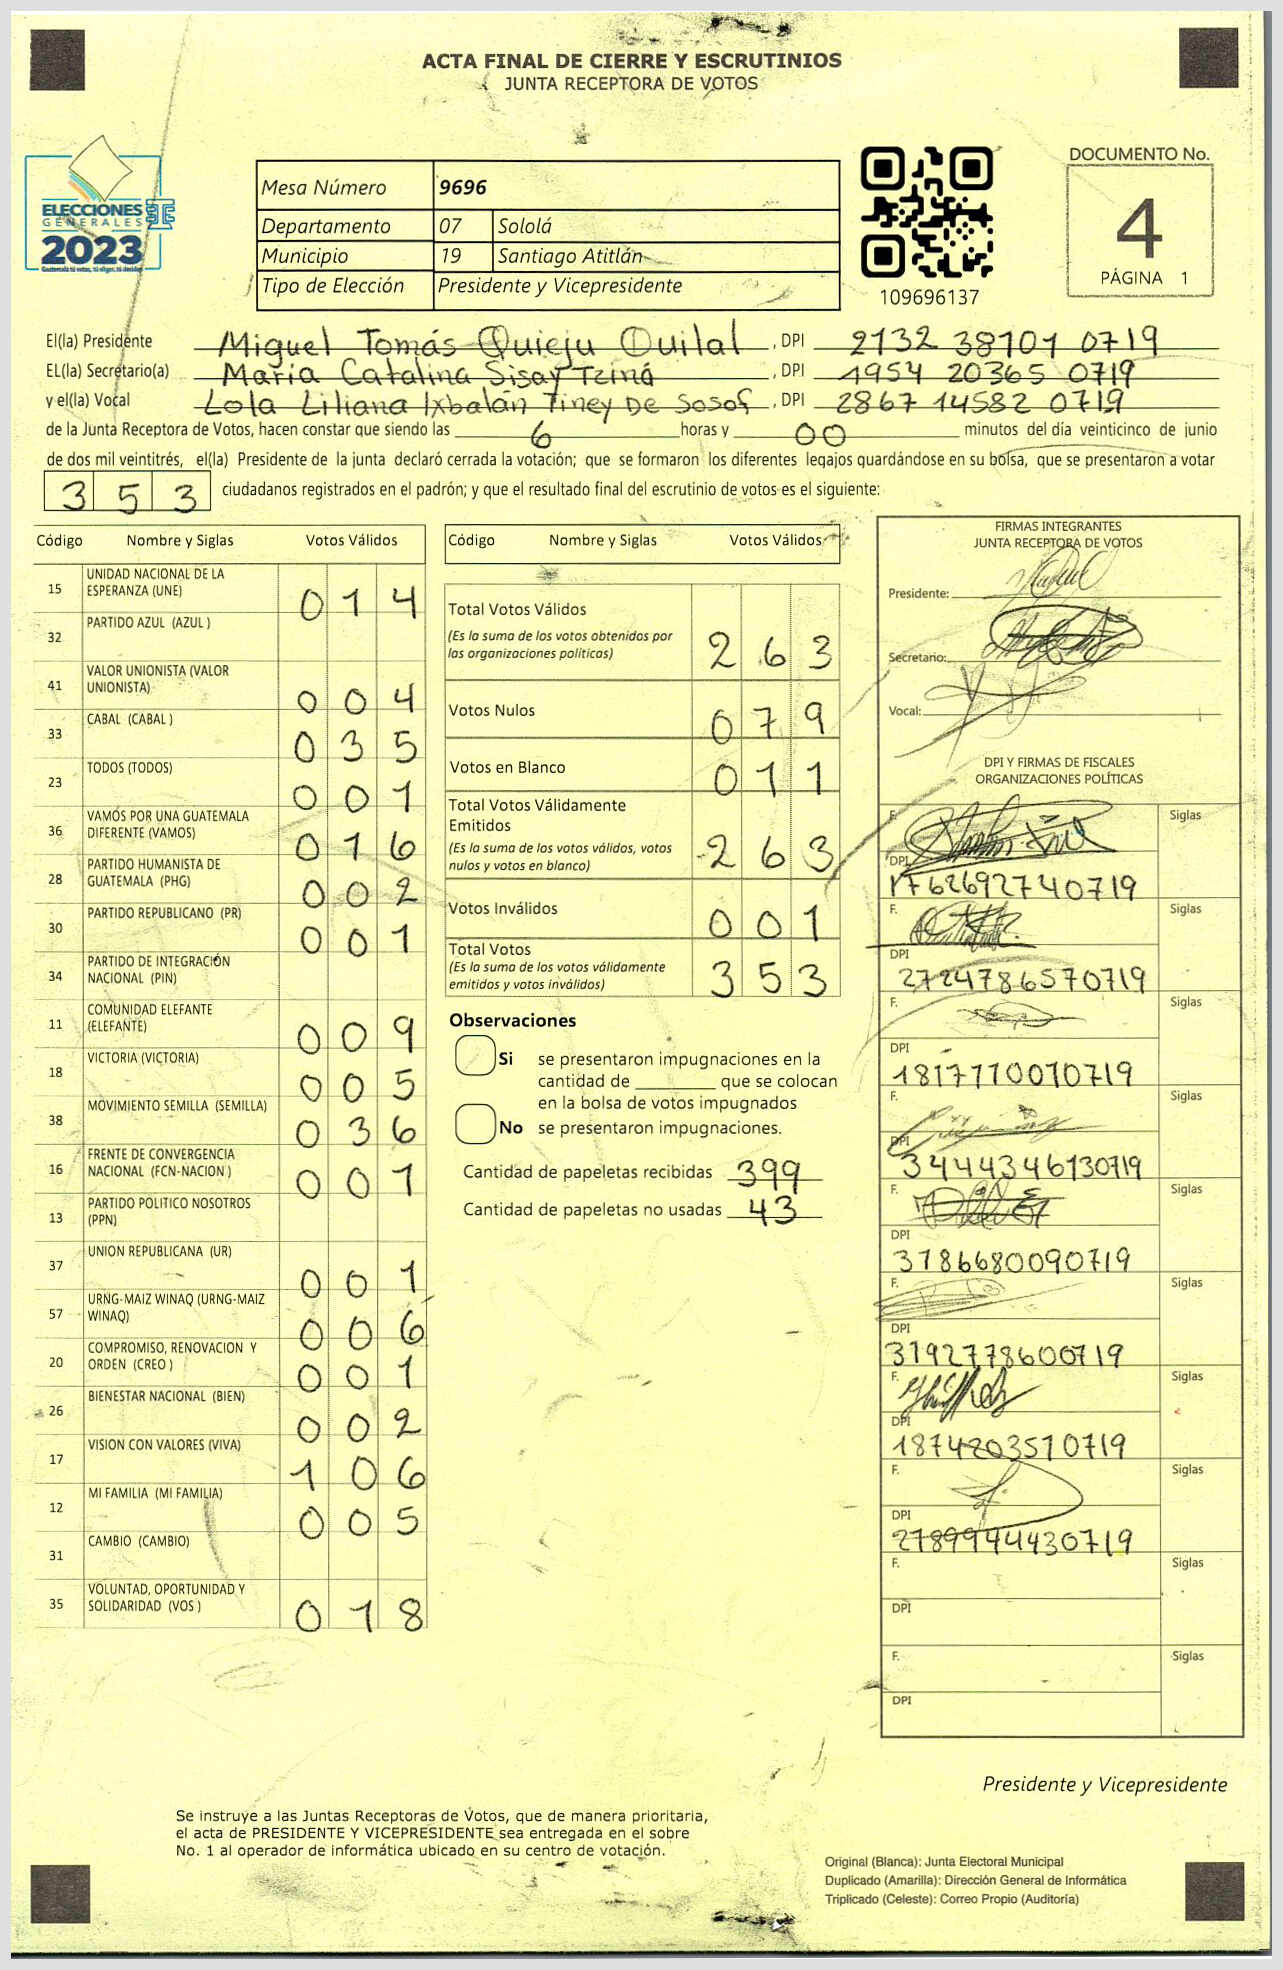 ACTA FINAL DE CIERRE Y ESCRUTINIOS
JUNTA RECEPTORA DE VOTOS
ELECCIONES
GENERALES
2023
Guatemala tú votas, tú eliges, tú decides
Mesa Número 9696
Departamento 07 Sololá
Municipio 19 Santiago Atitlán
Tipo de Elección Presidente y Vicepresidente
109696137
DOCUMENTO No.
4
PÁGINA 1
El(la) Presidente Miguel Tomás Quieju Quilal, DPI 2132 38101 0719
EL(la) Secretario(a) María Catalina Sisay Tziná, DPI 1954 20365 0719
y el(la) Vocal Lola Liliana Ixbalán Tiney De Sosof, DPI 2867 14582 0719
de la Junta Receptora de Votos, hacen constar que siendo las 6 horas y 00 minutos del día veinticinco de junio
de dos mil veintitrés, el(la) Presidente de la junta declaró cerrada la votación; que se formaron los diferentes legajos guardándose en su bolsa, que se presentaron a votar
353 ciudadanos registrados en el padrón; y que el resultado final del escrutinio de votos es el siguiente:
Código Nombre y Siglas Votos Válidos
15 UNIDAD NACIONAL DE LA ESPERANZA (UNE) 014
32 PARTIDO AZUL (AZUL )
41 VALOR UNIONISTA (VALOR UNIONISTA) 004
33 CABAL (CABAL ) 035
23 TODOS (TODOS) 001
36 VAMOS POR UNA GUATEMALA DIFERENTE (VAMOS) 016
28 PARTIDO HUMANISTA DE GUATEMALA (PHG) 002
30 PARTIDO REPUBLICANO (PR) 001
34 PARTIDO DE INTEGRACIÓN NACIONAL (PIN)
11 COMUNIDAD ELEFANTE (ELEFANTE) 009
18 VICTORIA (VICTORIA) 005
38 MOVIMIENTO SEMILLA (SEMILLA) 036
16 FRENTE DE CONVERGENCIA NACIONAL (FCN-NACION ) 001
13 PARTIDO POLITICO NOSOTROS (PPN)
37 UNION REPUBLICANA (UR) 001
57 URNG-MAIZ WINAQ (URNG-MAIZ WINAQ) 006
20 COMPROMISO, RENOVACION Y ORDEN (CREO ) 001
26 BIENESTAR NACIONAL (BIEN) 002
17 VISION CON VALORES (VIVA) 106
12 MI FAMILIA (MI FAMILIA) 005
31 CAMBIO (CAMBIO)
35 VOLUNTAD, OPORTUNIDAD Y SOLIDARIDAD (VOS ) 018
Código Nombre y Siglas Votos Válidos
Total Votos Válidos
(Es la suma de los votos obtenidos por
las organizaciones políticas) 263
Votos Nulos 079
Votos en Blanco 011
Total Votos Válidamente
Emitidos
(Es la suma de los votos válidos, votos
nulos y votos en blanco) 263
Votos Inválidos 001
Total Votos
(Es la suma de los votos válidamente
emitidos y votos inválidos) 353
Observaciones
Si se presentaron impugnaciones en la
cantidad de ________ que se colocan
en la bolsa de votos impugnados
No se presentaron impugnaciones.
Cantidad de papeletas recibidas 399
Cantidad de papeletas no usadas 43
FIRMAS INTEGRANTES
JUNTA RECEPTORA DE VOTOS
Presidente:
Secretario:
Vocal:
DPI Y FIRMAS DE FISCALES
ORGANIZACIONES POLÍTICAS
F. Siglas
DPI
1762692740719
F. Siglas
DPI
2724786570719
F. Siglas
DPI
1817710010719
F. Siglas
DPI
3444346130719
F. Siglas
DPI
3786680090719
F. Siglas
DPI
3192778600719
F. Siglas
DPI
1874203510719
F. Siglas
DPI
2789944430719
F. Siglas
DPI
F. Siglas
DPI
Presidente y Vicepresidente
Se instruye a las Juntas Receptoras de Votos, que de manera prioritaria,
el acta de PRESIDENTE Y VICEPRESIDENTE sea entregada en el sobre
No. 1 al operador de informática ubicado en su centro de votación.
Original (Blanca): Junta Electoral Municipal
Duplicado (Amarilla): Dirección General de Informática
Triplicado (Celeste): Correo Propio (Auditoría)